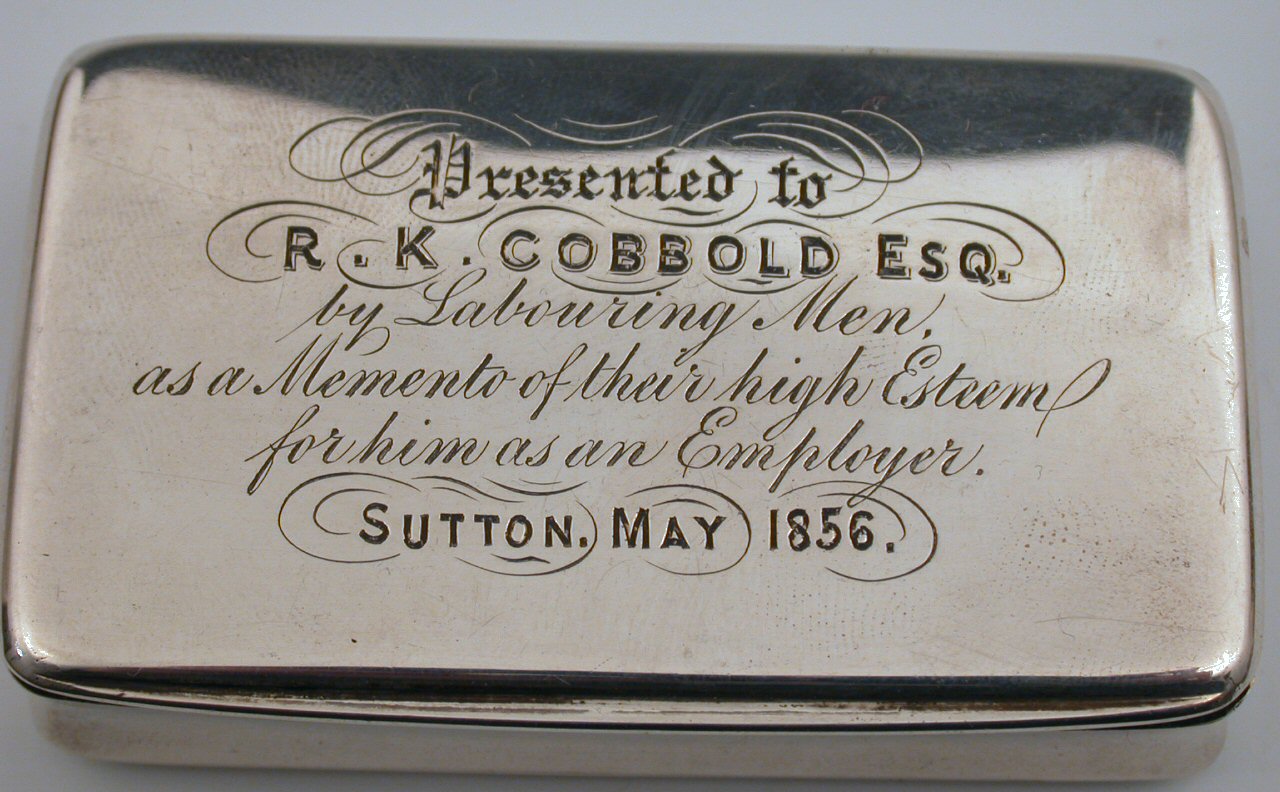 Presented to
R. K. COBBOLD ESQ.
by Labouring Men,
as a Memento of their high Esteem
for him as an Employer.
SUTTON. MAY 1856.